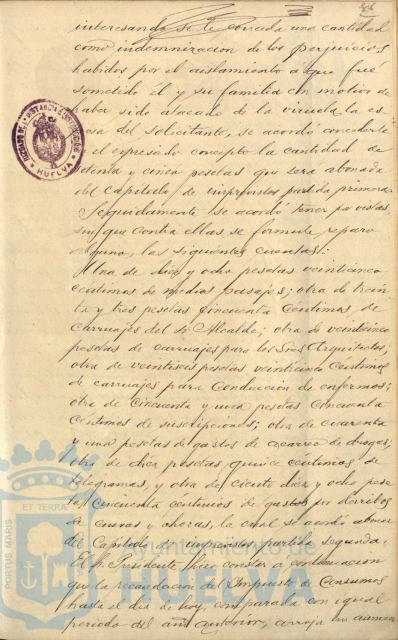 interesando se le conceda una cantidad
como indemnizacion de los perjuicios
habidos por el aislamiento á que fué
sometido él y su familia con motivo de
haber sido atacado de la viruela la es-
posa del solicitante, se acordó concederle
en el expresado concepto la cantidad de
setenta y cinco pesetas que sera abonada
del Capitulo de imprevistos partida primera.
Seguidamente se acordó tener por vistas,
sin que contra ellas se formule reparo
alguno, las siguientes cuentas:
Una de diez y ocho pesetas veinticinco
céntimos de medios pasajes; otra de trein-
ta y tres pesetas cincuenta céntimos de
carruajes del Sr. Alcalde; otra de veinticinco
pesetas de carruajes para los Sres Arquitectos;
otra de veintiseis pesetas veinticinco céntimos
de carruajes para conducción de enfermos;
otra de cincuenta y una pesetas cincuenta
céntimos de suscripciones; otra de cuarenta
y una pesetas de gastos de acarreo de drogas;
otra de diez pesetas quince céntimos de
telegramas, y otra de ciento diez y ocho pese-
tas cincuenta céntimos de gastos por derribos
de cuevas y chozas, la cual se acordó abonar
del Capitulo imprevistos partida segunda.
El Sr. Presidente hizo constar á continuacion
que la recaudación del Impuesto de Consumos
hasta el dia de hoy, comparada con igual
periodo del año anterior, arroja un aumen
HUELVA
PORTUS MARIS
ET TERRA
Ayuntamiento de
HUELVA